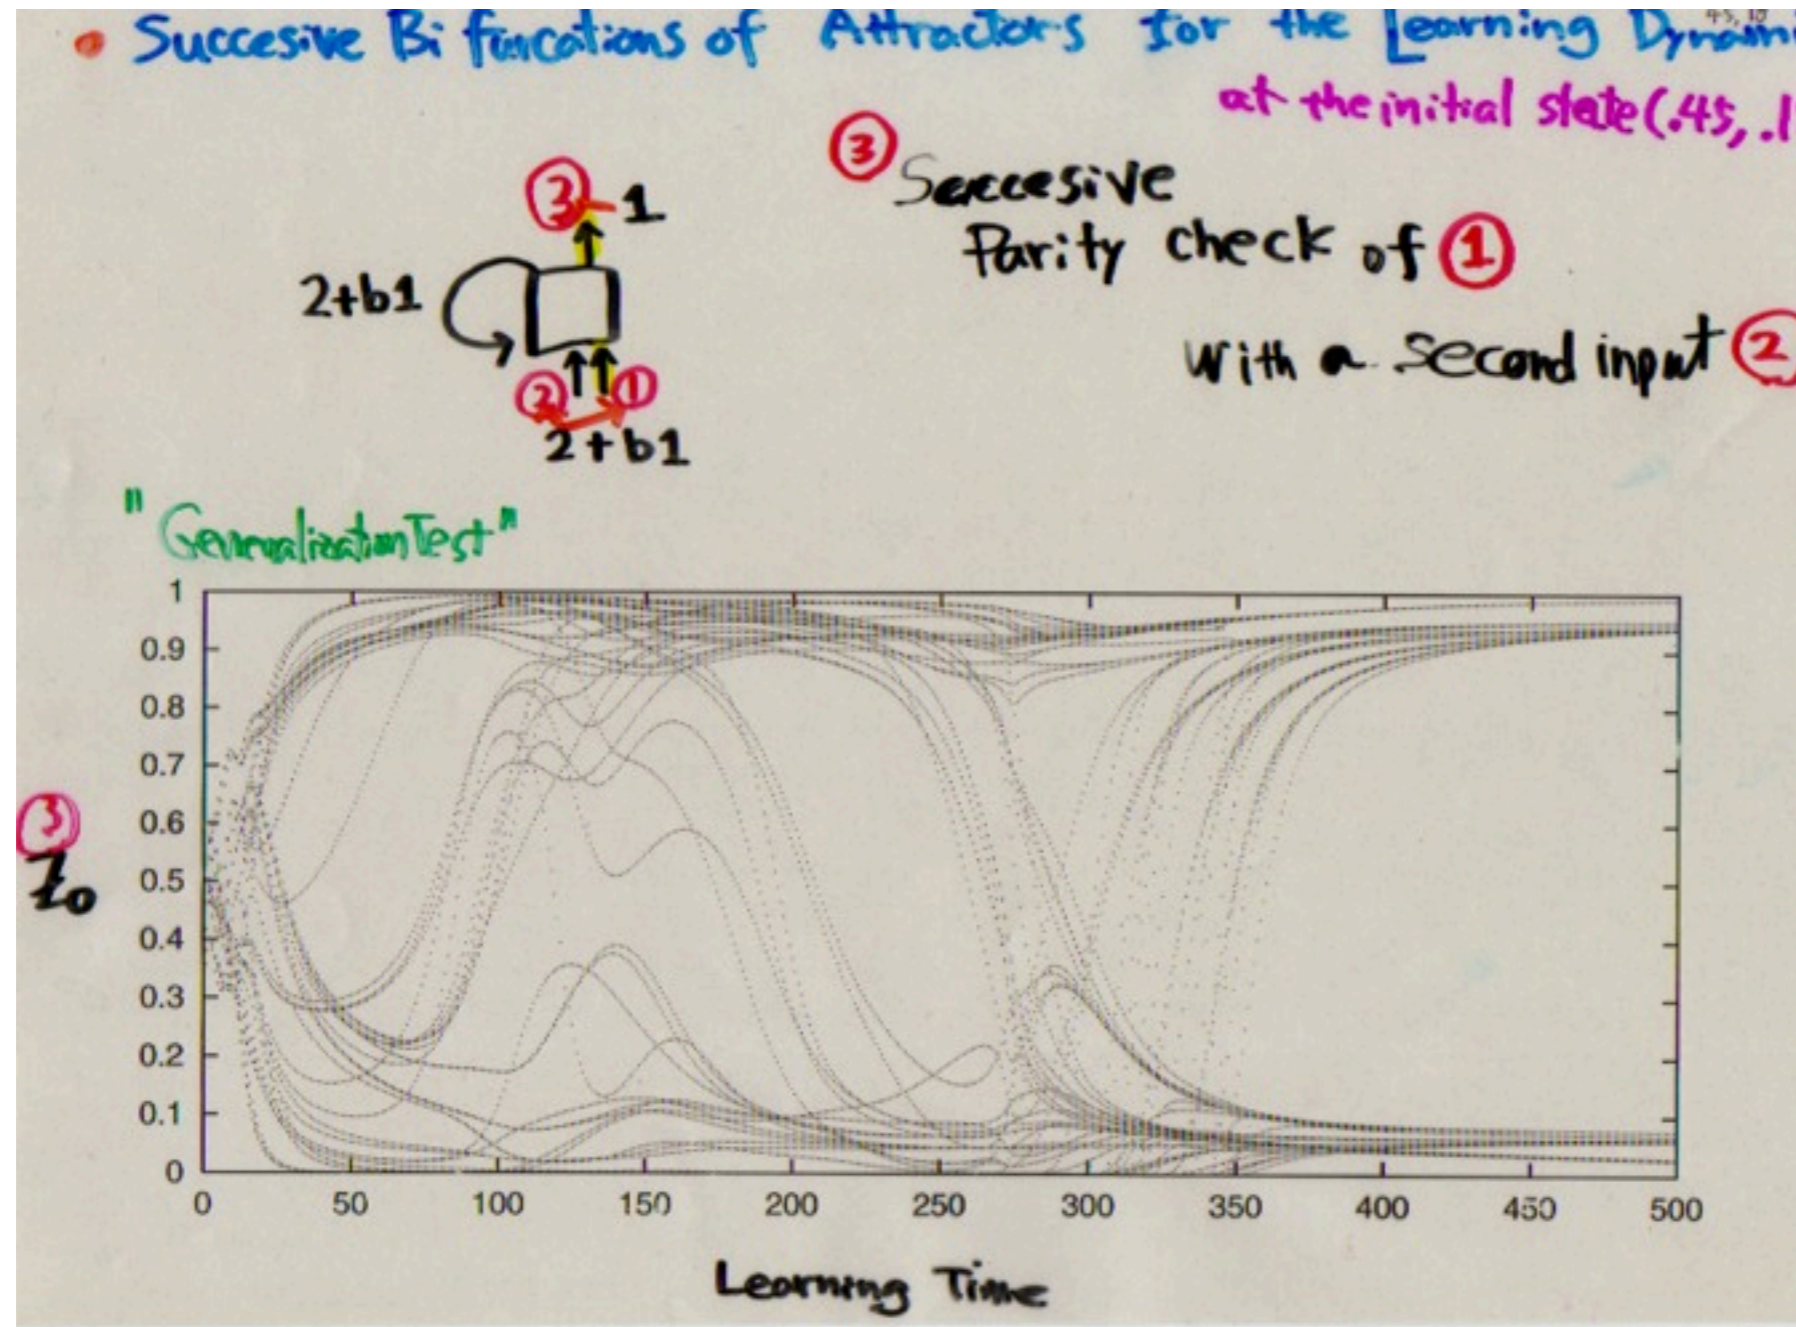 • Succesive Bifurcations of Attractors for the Learning Dynami
at the initial state (.45, .1
③ Succesive
Parity check of ①
with a second input ②
③ 1
2+b1
② ①
2+b1
"Generalization Test"
1
0.9
0.8
0.7
0.6
0.5
0.4
0.3
0.2
0.1
0
③
0 50 100 150 200 250 300 350 400 450 500
Learning Time